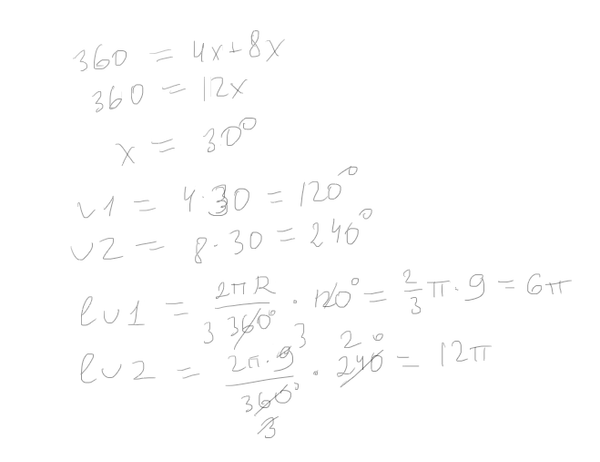 360 = 4x+8x
360 = 12x
x = 30°
∪1 = 4·30 = 120°
∪2 = 8·30 = 240°
l∪1 = 2πR / 360° · 120° = 2/3 π·9 = 6π
3
l∪2 = 2π·9 / 360° · 240° = 12π
3 2
3